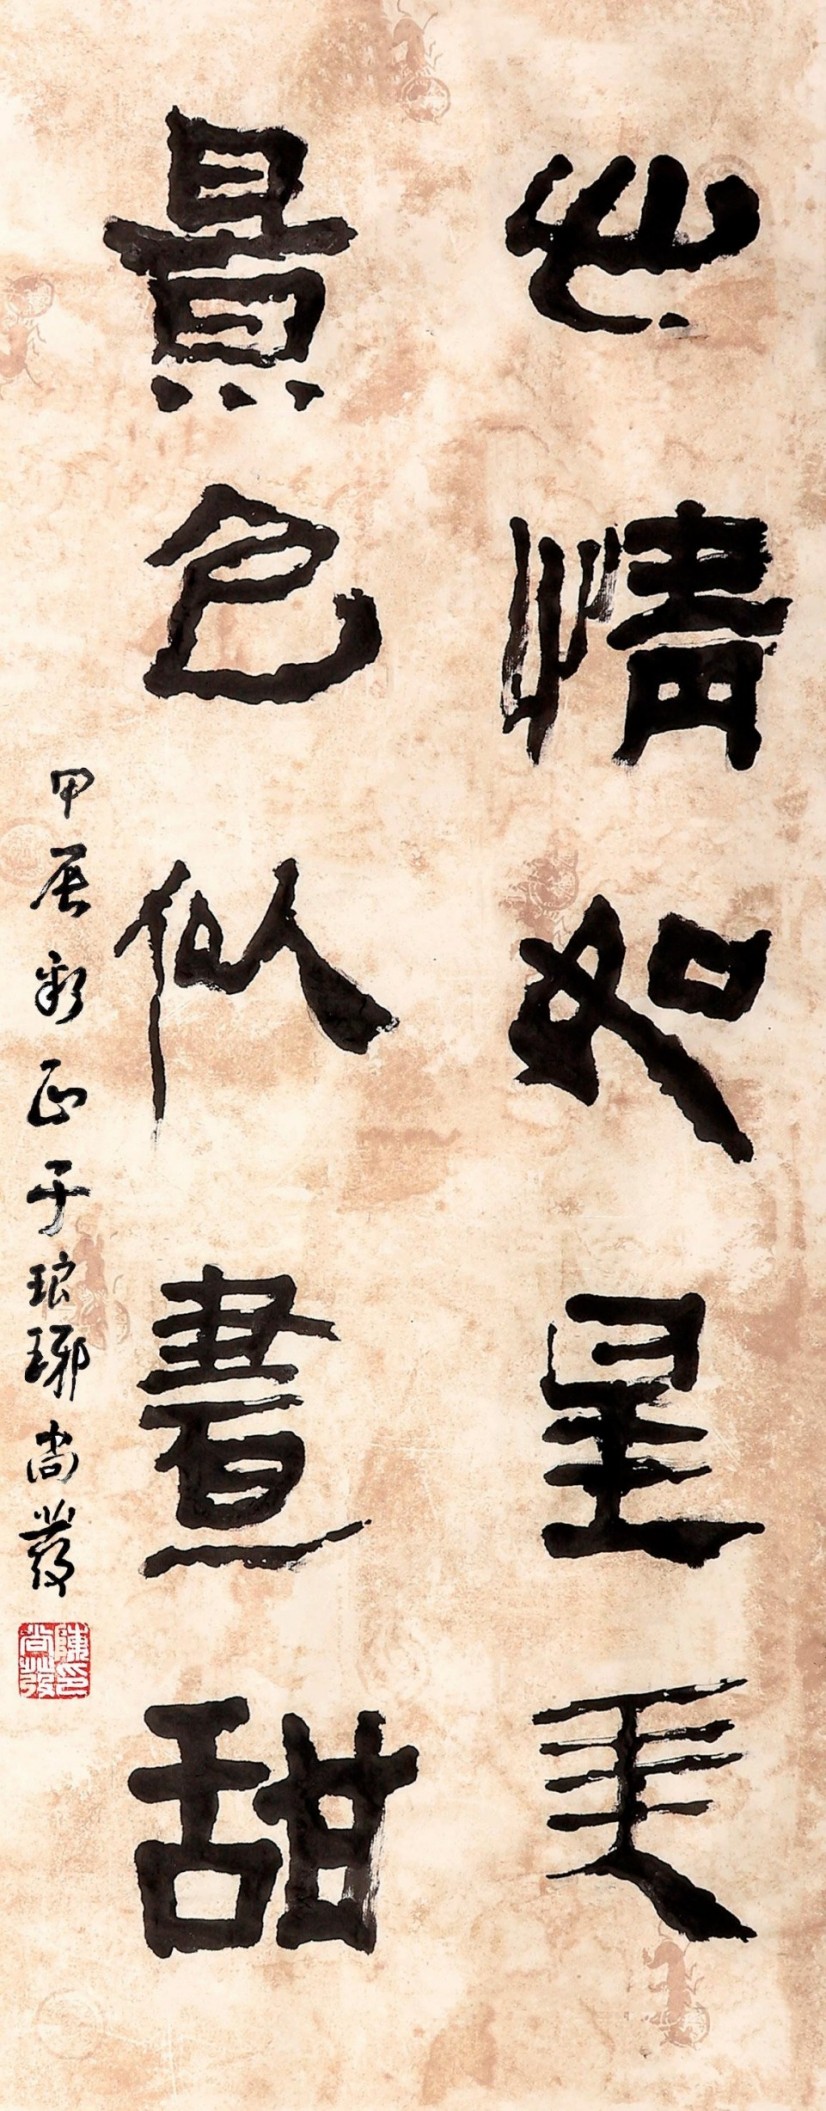 心情如星美
景色似畫甜
甲辰新正于琅琊尚發
陳印尚發